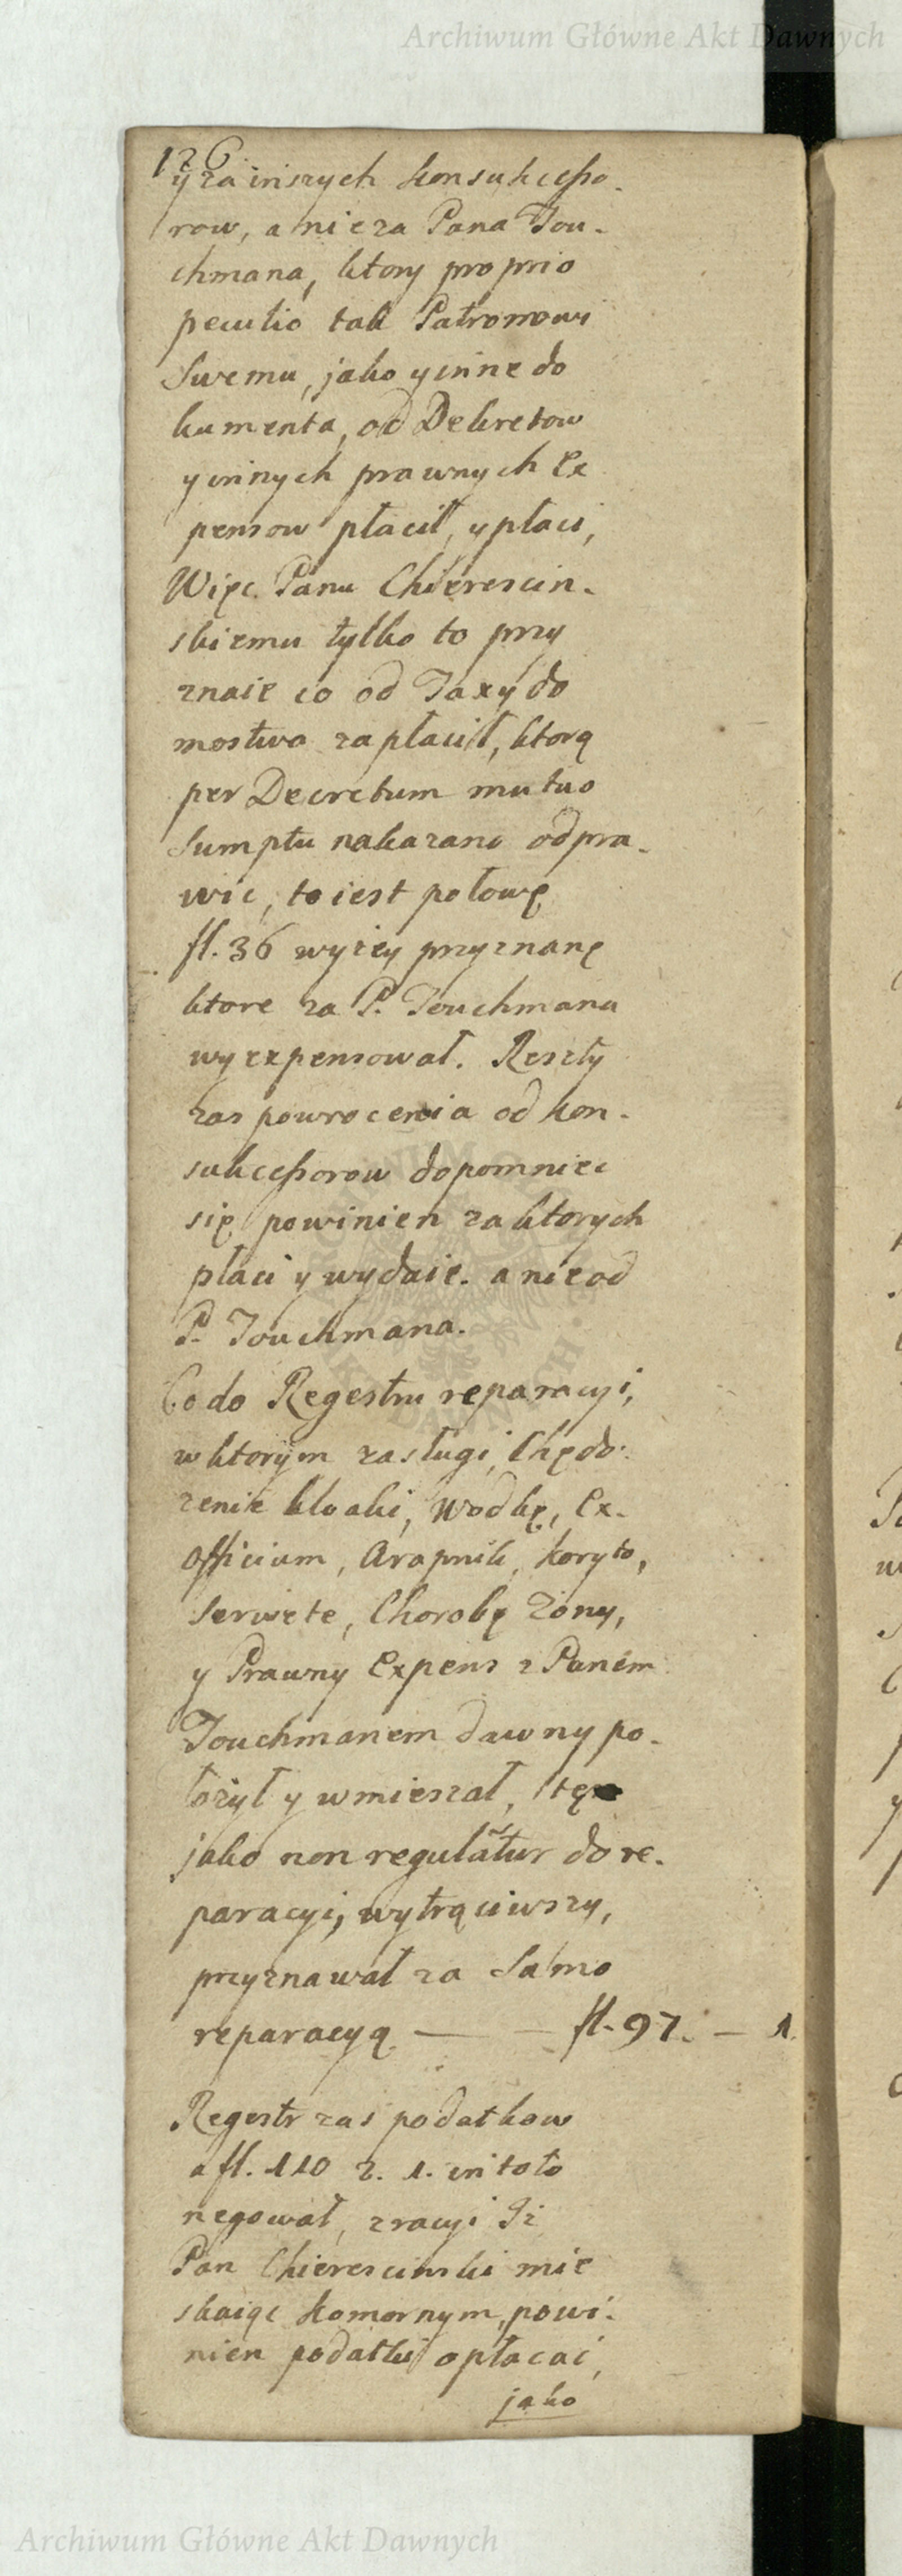 Archiwum Główne Akt Dawnych
126
y za inszych konsukcesso-
row, a nie za Pana Tou-
chmana, ktory proprio
peculio tak Patronowi
Swemu, jako y inne do
kumenta, od Dekretow
y innych prawnych Ex
pensow płacił, y płaci,
Więc Panu Chierescin-
skiemu tylko to przy
znaie co od Taxy do
mostwa zapłacił, ktorą
per Decretum mutuo
Sumptu nakazano odpra-
wic, to iest połowę
fl. 36 wyżey przyznanę
ktore za P. Touchmana
wyexpensował. Reszty
zas powrocenia od kon-
sukcessorow dopomniec
się powinien za ktorych
płaci y wydaie. a nie od
P. Touchmana.
Co do Regestru reparacyi,
w ktorym zasługi, Chędo-
zenie kloaki, Wodkę, Ex-
Officium, Arapnik, koryto,
Serwete, Chorobę Zony,
y Prawny Expens z Panem
Touchmanem dawny po-
łożył y wmieszał, tę
jako non regulatur do re-
paracyi, wytrąciwszy,
przyznawał za Samo
reparacyą — — fl. 97. — 1.
Regestr zas podatkow
a fl. 110 z. 1. in toto
negował, z racyi Iż
Pan Chierescinski mie
skaiąc komornym, powi-
nien podatki opłacac,
jako
Archiwum Główne Akt Dawnych